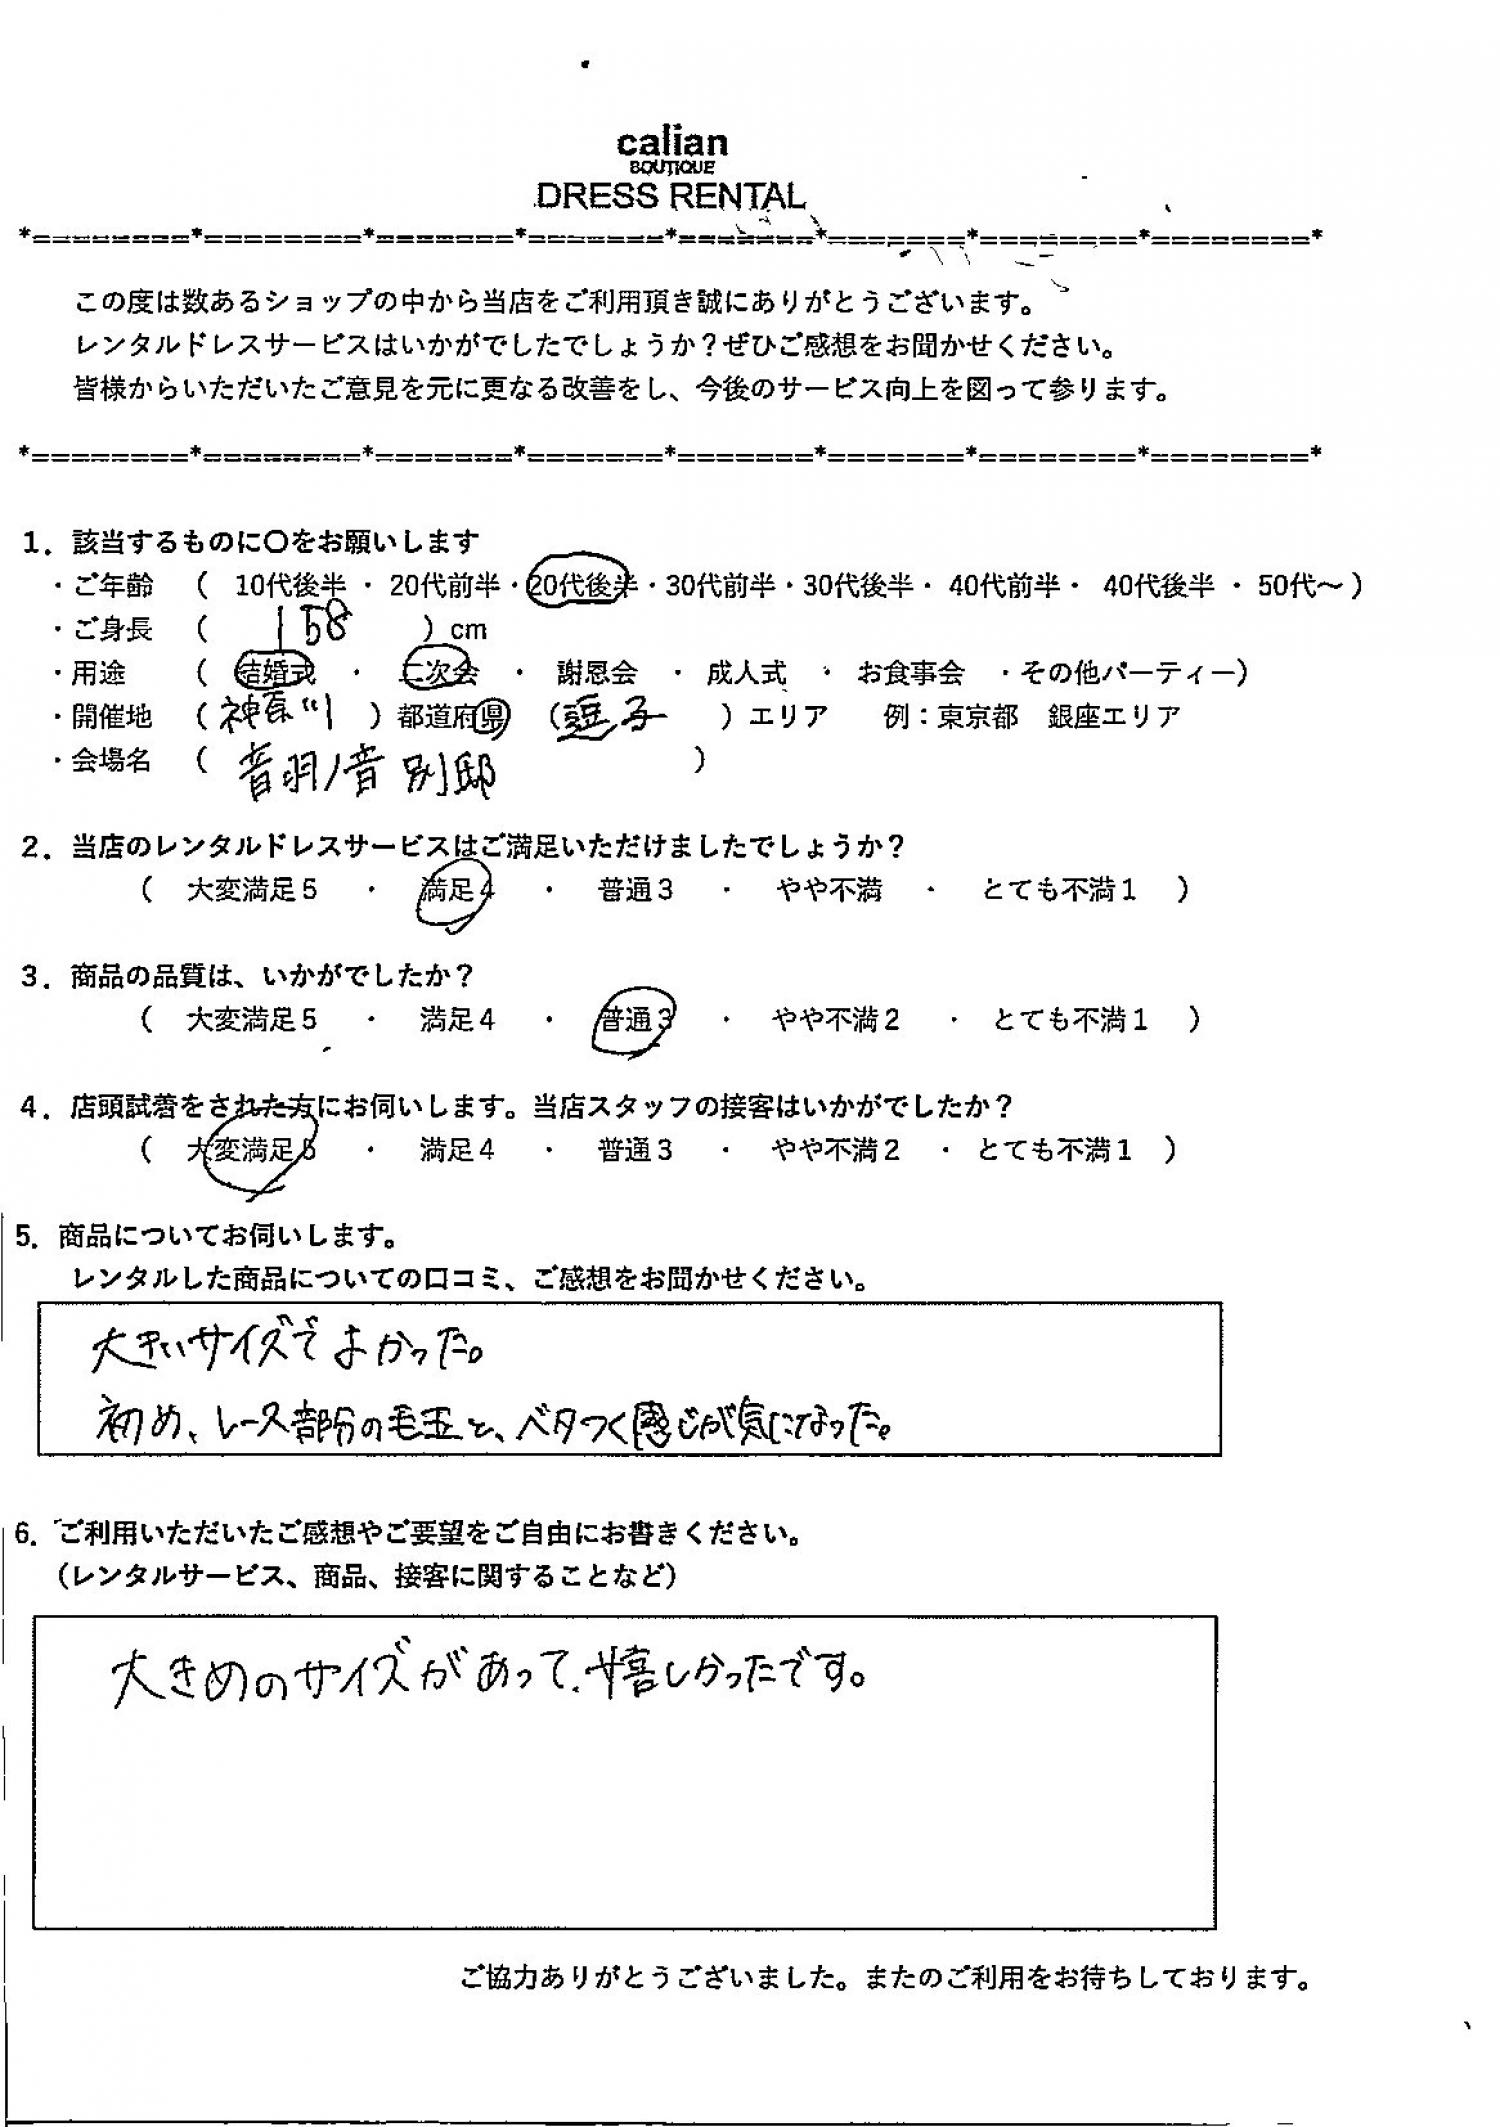 calian
BOUTIQUE
DRESS RENTAL
*========*========*=======*=======*=======*=======*========*========*
この度は数あるショップの中から当店をご利用頂き誠にありがとうございます。
レンタルドレスサービスはいかがでしたでしょうか？ぜひご感想をお聞かせください。
皆様からいただいたご意見を元に更なる改善をし、今後のサービス向上を図って参ります。
*========*========*=======*=======*=======*=======*========*========*
1．該当するものに〇をお願いします
・ご年齢 （ 10代後半 ・ 20代前半・20代後半・30代前半・30代後半・ 40代前半・ 40代後半 ・ 50代～ ）
・ご身長 （ 158 ）cm
・用途 （ 結婚式 ・ 二次会 ・ 謝恩会 ・ 成人式 ・ お食事会 ・その他パーティー）
・開催地 （ 神奈川 ）都道府県 （ 逗子 ）エリア 例：東京都 銀座エリア
・会場名 （ 音羽ノ音 別邸 ）
2．当店のレンタルドレスサービスはご満足いただけましたでしょうか？
（ 大変満足５ ・ 満足４ ・ 普通３ ・ やや不満 ・ とても不満１ ）
3．商品の品質は、いかがでしたか？
（ 大変満足５ ・ 満足４ ・ 普通３ ・ やや不満２ ・ とても不満１ ）
4．店頭試着をされた方にお伺いします。当店スタッフの接客はいかがでしたか？
（ 大変満足５ ・ 満足４ ・ 普通３ ・ やや不満２ ・ とても不満１ ）
5．商品についてお伺いします。
レンタルした商品についての口コミ、ご感想をお聞かせください。
大きいサイズでよかった。
初め、レース部分の毛玉と、ベタつく感じが気になった。
6．ご利用いただいたご感想やご要望をご自由にお書きください。
（レンタルサービス、商品、接客に関することなど）
大きめのサイズがあって、嬉しかったです。
ご協力ありがとうございました。またのご利用をお待ちしております。